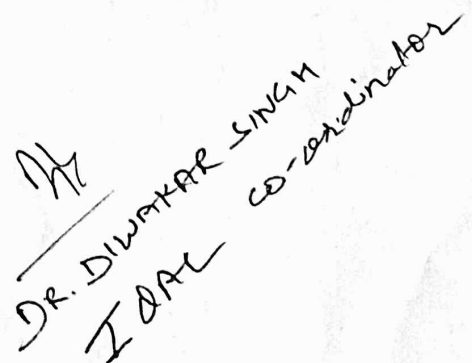 DR. DIWAKAR SINGH
IQAC co-ordinator